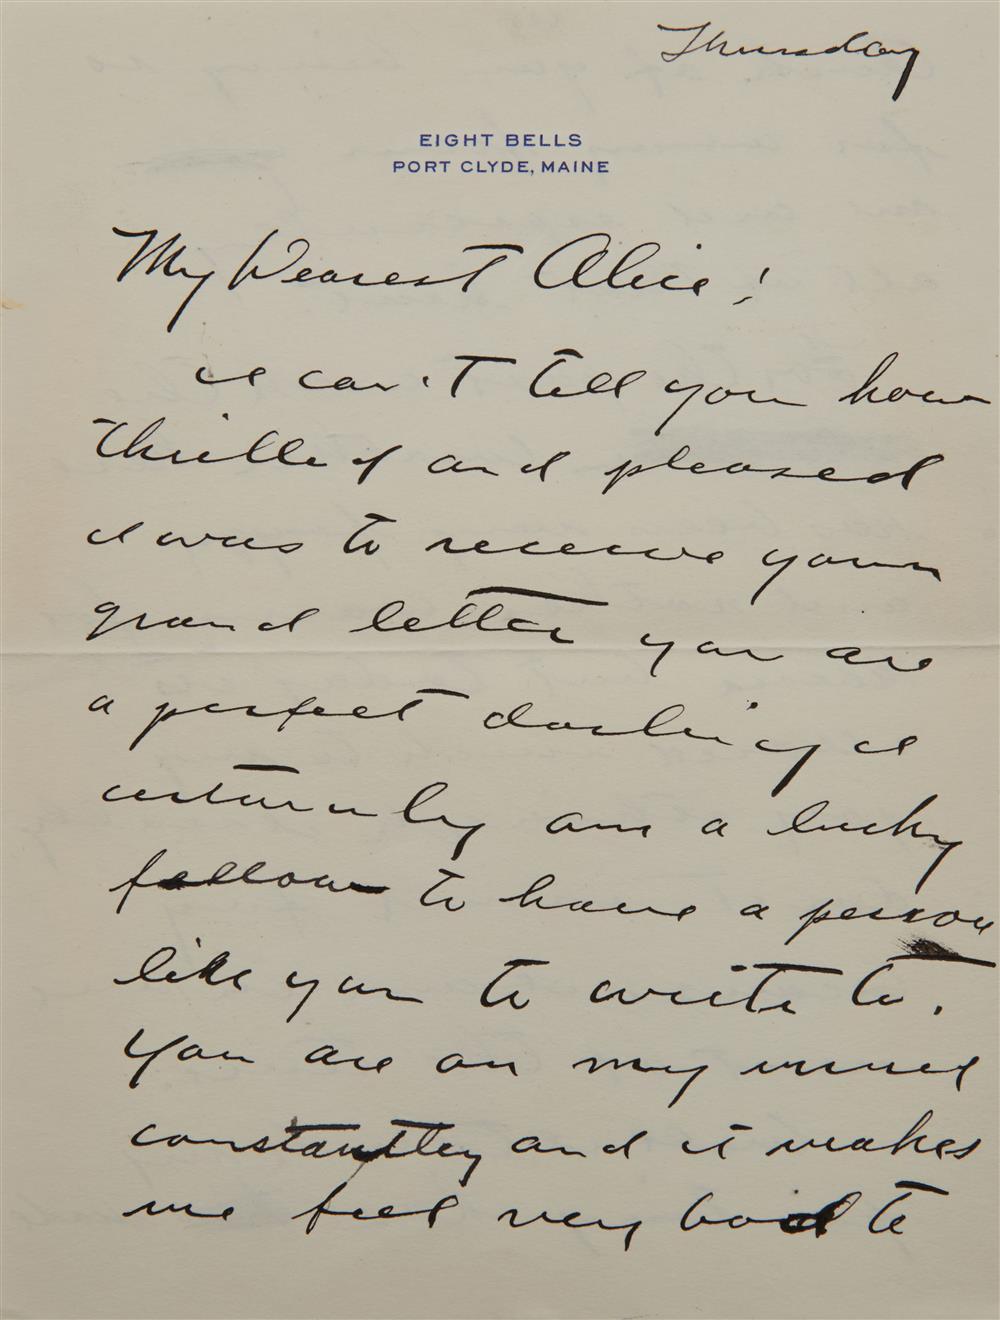 Thursday
EIGHT BELLS
PORT CLYDE, MAINE
My Dearest Alice!
I can't tell you how
thrilled and pleased
I was to receive your
grand letter you are
a perfect darling I
certainly am a lucky
fellow to have a person
like you to write to.
You are on my mind
constantley and it makes
me feel very bad to